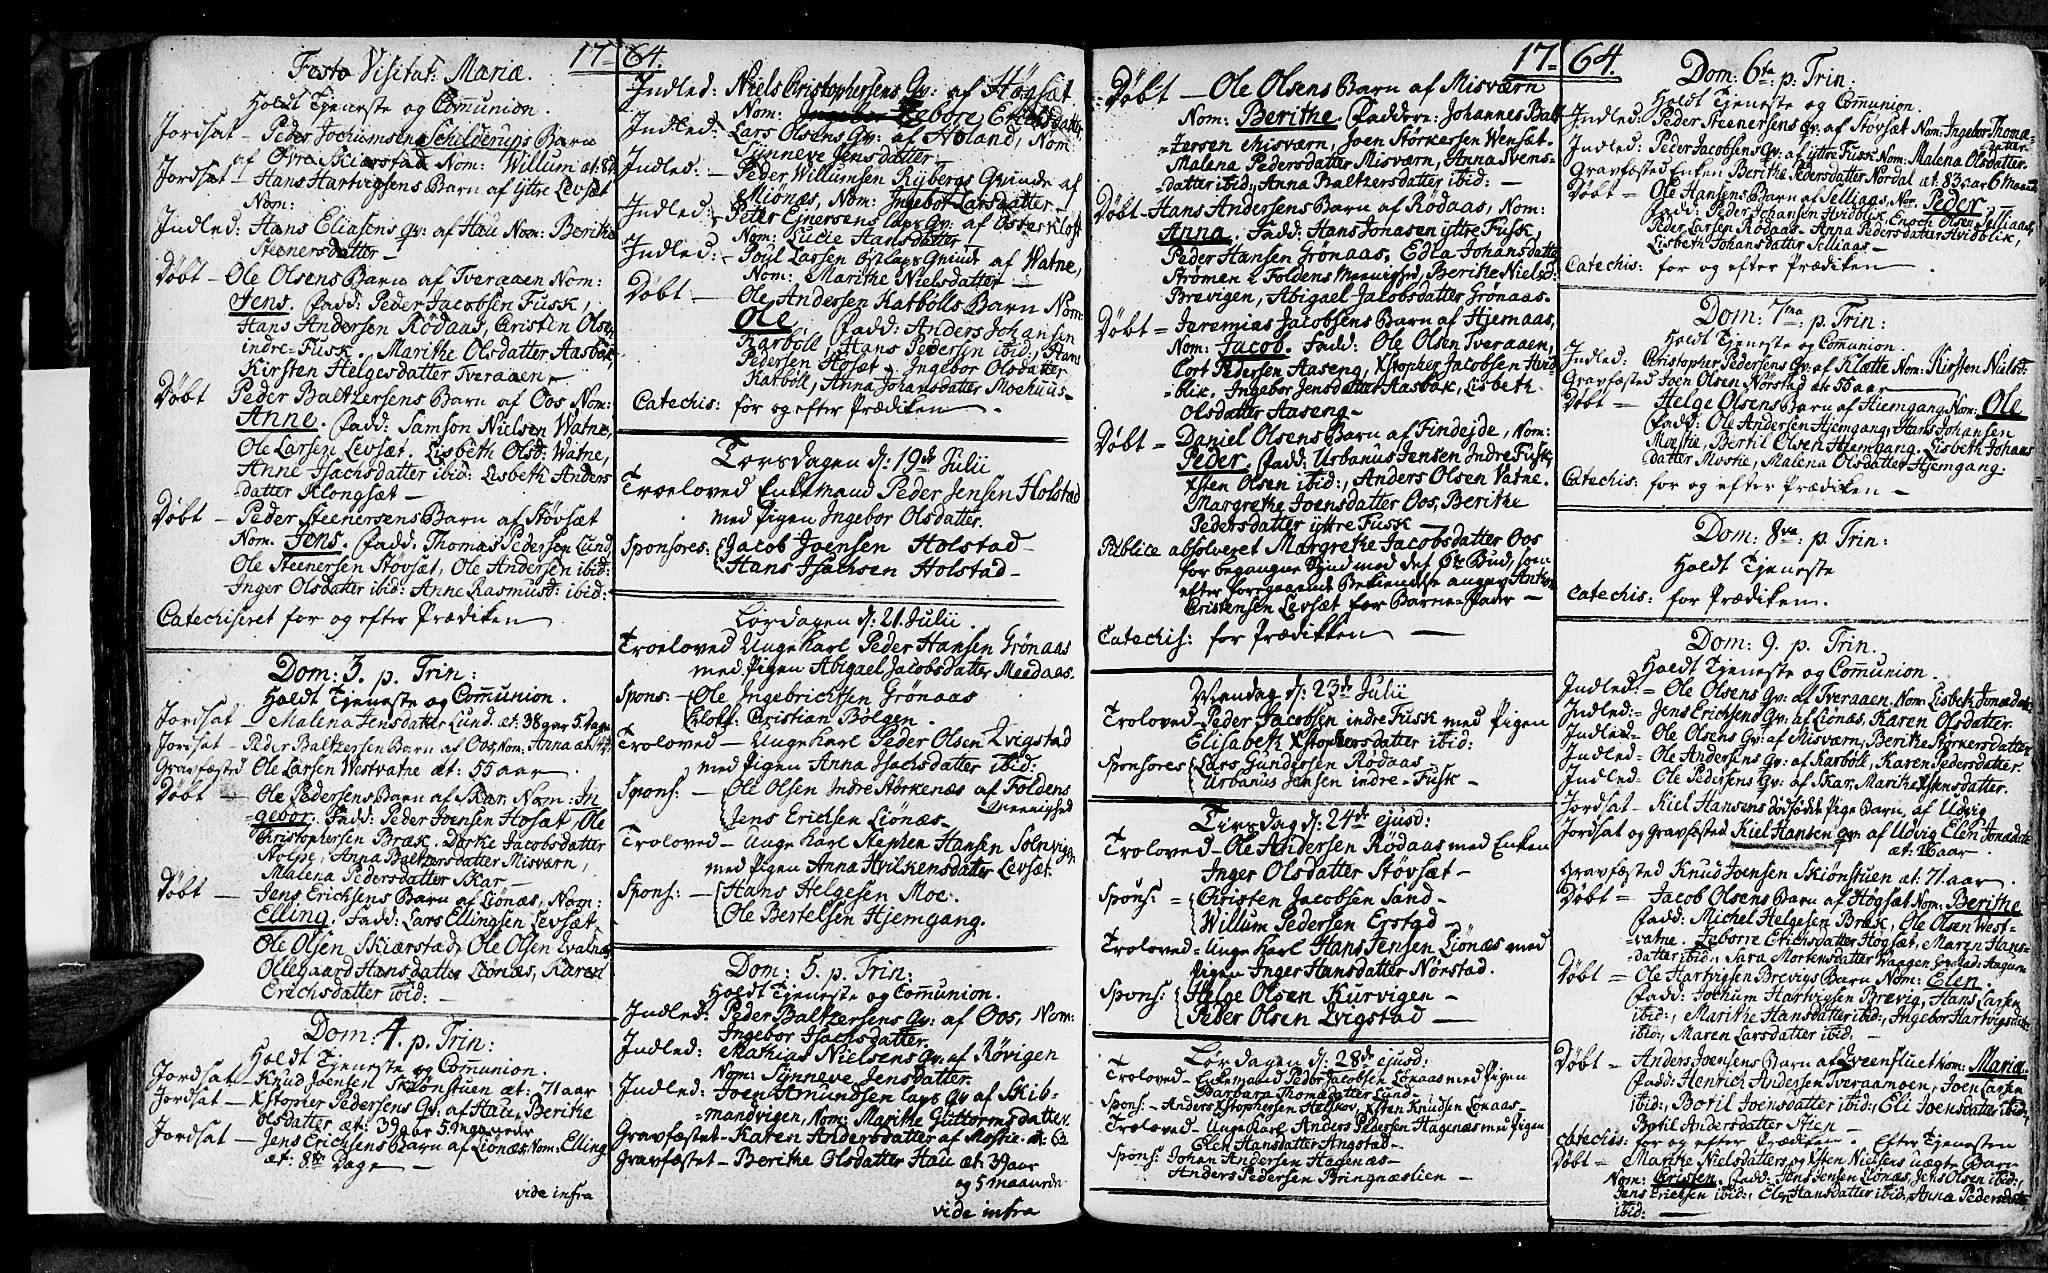 17 64.
Festo Visitat: Mariæ.
Holdt Tjeneste og Communion.
Jordsat – Peder Jochumsens Schilderups Barn
af Øvre Skierstad Nom: Willum æt: 8
Jordsat – Hans Hartvigsens Barn af yttre Levsæt
Nom:
Indled: Hans Eliasens Qv: af Hau Nom: Berithe
Steenersdatter –
Døbt – Ole Olsens Barn af Tveraaen Nom:
Jens. Fadd: Peder Jacobsen Fusk,
Hans Andersen Rödaas, Cristen Olsen
indre-Fusk. Marithe Olsdatter Aasbak,
Kirsten Helgesdatter Tveraaen –
Døbt Peder Baltzersens Barn af Oos Nom:
Anne. Fadd: Samson Nielsen Watne,
Ole Larsen Levsæt. Lisbeth Olsd: Watne,
Anne Isachsdatter ibid: Lisbeth Anders
datter Klongsæt –
Døbt – Peder Steenersens Barn af Stövsæt
Nom. Jens. Fadd: Thomas Pedersen Lund,
Ole Steenersen Stövsæt, Ole Andersen ibid:
Inger Olsdatter ibid: Anne Rasmusd: ibid:
Catechiseret for og efter Prædiken
Dom: 3. p. Trin:
Holdt Tjeneste og Communion.
Jordsat – Malena Jensdatter Lund. æt: 38 aar 5 dage
Jordsat – Peder Baltzersen Barn af Oos Nom: Anna æt:
Gravfæsted Ole Larsen Westvatne æt: 55 aar.
Døbt – Ole Pedersens Barn af Skar Nom: In
gebor. Fadd: Peder Joensen Hosæt, Ole
Christophersen Bræk, Dorke Jacobsdatter
Anna Baltzersdatter Misværn,
Malena Pedersdatter Skar –
Døbt – Jens Erichsens Barn af Liönæs, Nom:
Elling. Fadd: Lars Ellingsen Levsæt,
Ole Olsen Skiærstad, Ole Olsen Evatnæ
Ollegaard Hansdatter Liönæs, Karen
Erichsdatter ibid: –
Dom: 4. p. Trin:
Holdt Tjeneste og Communion.
Jordsat – Knud Joensen Skiönstuen æt: 71 aar
Jordsat – Xstopher Pedersens Qv: af Hau, Berithe
Olsdatter æt: 39 aar 5 maaneder
Jordsat – Jens Erichsens Barn af Liönæs Nom: Elling
æt: 8te Dage –
vide infra
Indled: Niels Cristophersens Qv: af Högsæt
Nom: Zebore Erichsdatter
Indled: Lars Olsens Qv: af Holand, Nom:
Synneve Jensdatter
Indled: – Peder Willumsen Rijbergs Qvinde af
Miönæs, Nom: Ingebor Larsdatter
Indled: Peter Ejnersens laps Qv: af Österkloft
Nom: Lucie Hansdatter –
Indled: – Poul Larsen Østlaps Qvinde af Watne,
Nom: Marithe Nielsdatter –
Døbt – Ole Andersen Karbölls Barn Nom:
Ole. Fadd: Anders Johansen
Karböll, Hans Pedersen ibid: Hans
Pedersen Hosæt, Ingebor Olsdatter
Karböll, Anna Johansdatter Moehuus –
Catechis: for og efter Prædiken.
Torsdagen d: 19de Julii
Troeloved Enkemand Peder Jensen Holstad
med Pigen Ingebor Olsdatter.
Sponsores: Jacob Joensen Holstad –
Hans Isachsen Holstad –
Lørdagen d: 21. Julii.
Troeloved Ungekarl Peder Hansen Grönaas
med Pigen Abigael Jacobsdatter Meedaas.
Spons: – Ole Ingebrichtsen Grönaas
Klokk: Christian Bölgen.
Troloved – Ungekarl Peder Olsen Qvigstad
med Pigen Anna Isachsdatter ibid:
Spons: – Ole Olsen Indre Störkenæs af Foldens
Menighed
Jens Erichsen Liönæs –
Troloved – Ungekarl Stephen Hansen Solvig
med Pigen Anna Hvilkensdatter Levsæt
Spons: – Hans Helgesen Moe.
Ole Bertelsen Hjemgang.
Dom: 5. p. Trin:
Holdt Tjeneste og Communion.
Indled: Peder Baltzersens Qv: af Oos, Nom:
Ingebor Isachsdatter.
Indled: – Mathias Nielsens Qv: af Rövigen
Nom: Synneve Jensdatter.
Indled: Joen Amundsen laps Qv af Skib-
mandvigen, Nom: Marithe Guttormsdatter.
Gravfæstet – Karen Andersdatter af Mostie æt: 62
Gravfæstet – Berithe Olsdatter Hau æt: 39 aar
og 5 maaneder
vide infra
17 64.
Døbt – Ole Olsens Barn af Misværn
Nom: Berithe. Faddere: Johannes Balt
zersen Misværn, Joen Störkersen Wensæt.
Malena Pedersdatter Misværn, Anna Svens-
datter ibid: Anna Baltzersdatter ibid: –
Døbt – Hans Andersens Barn af Rödaas, Nom:
Anna. Fadd: Hans Jonasen yttre Fusk,
Peder Hansen Grönaas, Edla Johansdatter
Strömen i Foldens Meenighed, Berithe Nielsd:
Brevigen, Abigael Jacobsdatter Grönaas.
Døbt = Jeremias Jacobsens Barn af Hjemaas,
Nom: Jacob. Fadd: Ole Olsen Tveraaen,
Cort Pedersen Aaseng, Xstopher Jacobsen Hvid
blik. Ingebor Jensdatter Aasbak, Lisbeth
Olsdatter Aaseng –
Døbt = Daniel Olsens Barn af Findejde, Nom:
Peder. Fadd: Urbanus Jensen Indre Fusk,
Xsten Olsen ibid:, Anders Olsen Vatne.
Margrethe Joensdatter Oos, Berithe
Pedersdatter yttre Fusk –
Publice absolveret Margrethe Jacobsdatter Oos
for begangne Synd mod det 6te Bud, som
efter foregaaende Bekiendelse angav Anton
Cristensen Levsæt for Barne-Fader –
Catechis: for Prædikken –
Mandag d: 23de Julii
Troloved Peder Jacobsen indre Fusk med Pigen
Elisabeth Xstophersdatter ibid:
Sponsores Lars Gundersen Rödaas
Urbanus Jensen indre-Fusk –
Tirsdag d: 24de ejusd:
Troloved Ole Andersen Rödaas med Enken
Inger Olsdatter Stövsæt –
Spons: = Christen Jacobsen Sand –
Willum Pedersen Erstad –
Troloved = Unge Karl Hans Jensen Liönæs med
Pigen Inger Hansdatter Nörstad.
Spons: Helge Olsen Kurvigen –
Peder Olsen Qvigstad –
Lørdagen d: 28de ejusd:
Troloved – Enkemand Peder Jacobsen Lönaas med Pigen
Barbara Thomædatter Lund –
Spons: – Anders Xstophersen Helskov, Xsten Knudsen Lönaas –
Troloved – Unge Karl Anders Pedersen Hagenæs med Pigen
Elen Hansdatter Angstad –
Spons: Johan Andersen Hagenæs –
Anders Pedersen Bringnæslien –
Dom: 6ta p: Trin:
Holdt Tjeneste og Communion.
Indled: Peder Steenersens Qv: af Stövsæt Nom: Ingebor Thomæ-
datter
Indled: Peder Jacobsens Qv: af yttre Fusk Nom: Malena Olsdatter.
Gravfæsted Enken Berithe Pedersdatter Nordal æt: 83 aar 6 Maan
Døbt = Ole Hansens Barn af Selliaas, Nom: Peder.
Fadd: Peder Johansen Hvidblik, Enoch Olsen Selliaas,
Peder Larsen Rödaas. Anna Pedersdatter Hvidblik,
Lisbeth Johansdatter Selliaas –
Catechis: for og efter Prædiken.
Dom: 7ma: p: Trin:
Holdt Tjeneste og Communion.
Indled: Cristopher Pedersens Qv: af Klætte Nom: Kirsten Nielsd:
Gravfæsted Joen Olsen Nörstad æt: 56 aar
Døbt = Helge Olsens Barn af Hjemgang Nom: Ole
Fadd: Ole Andersen Hjemgang, Hans Johansen
Mostie, Bertil Olsen Hjemgang. Lisbeth Johans
datter Mostie, Malena Olsdatter Hjemgang:
Catechis: for og efter Prædiken –
Dom: 8va: p: Trin:
Holdt Tjeneste
Catechis: for Prædiken.
Dom: 9. p. Trin.
Holdt Tjeneste og Communion.
Indled: = Ole Olsens Qv: af Tveraaen Nom: Lisbeth Jonædatter
Indled: = Jens Erichsens Qv: af Liönæs, Karen Olsdatter.
Indled: = Ole Olsens Qv: af Misværn, Berithe Störkersdatter
Indled: = Ole Andersens Qv: af Karböll, Karen Pedersdatter.
Indled: = Ole Pedersens Qv: af Skar, Marithe Xstensdatter.
Jordsat – Kiel Hansens dödfödte Pige Barn, af Udvig
Jordsat og Gravfæsted Kiel Hansen Qv: af Udvig Elen Jonædatter
æt: 26 aar
Gravfæsted Knud Joensen Skiönstuen æt: 71 aar.
Døbt = Jacob Olsens Barn af Högsæt Nom: Berithe
Fadd: Michel Helgesen Bræk, Ole Olsen West-
vatne. Zeborre Erichsdatter Högsæt, Maren Hans-
datter ibid:, Sara Mortensdatter Waagen
Døbt = Ole Hartvigsen Brevigs Barn Nom: Elen.
Fadd: Jochum Hartvigsen Brevig, Hans Larsen
ibid:, Marithe Hansdatter ibid:, Ingebor Hartvigsdatter
ibid:, Maren Larsdatter ibid: –
Døbt = Anders Joensens Barn af Evenfluet Nom: Mariæ.
Fadd: Henrich Andersen Tveraamoen, Joen Larsen
ibid:, Botil Joensdatter ibid:, Eli Joensdatter ibid,
Botil Andersdatter Stien –
Catechis: for og efter Prædiken. Efter Tjenesten
Døbt = Marithe Nielsdatters og Xsten Nielsens uægte Barn
Nom: Cristen. Fadd: Jens Jensen Liönæs, Jens Olsen ibid:,
Jens Erichsen ibid:, Elen Hansdatter ibid:, Anna Pedersdatter
ibid: –